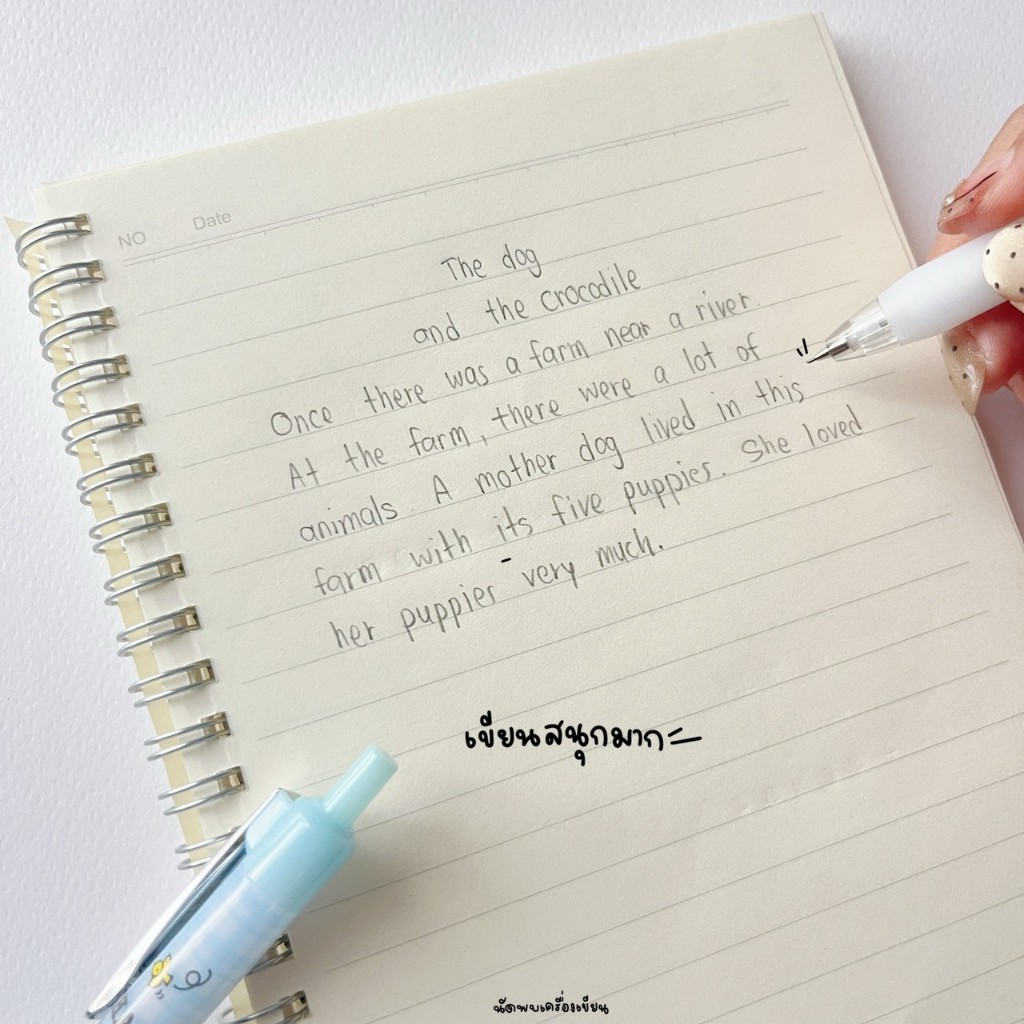 NO Date
The dog
and the crocodile
Once there was a farm near a river.
At the farm, there were a lot of
animals. A mother dog lived in this
farm with its five puppies. She loved
her puppies very much.
เขียนสนุกมาก
นัดพบเครื่องเขียน